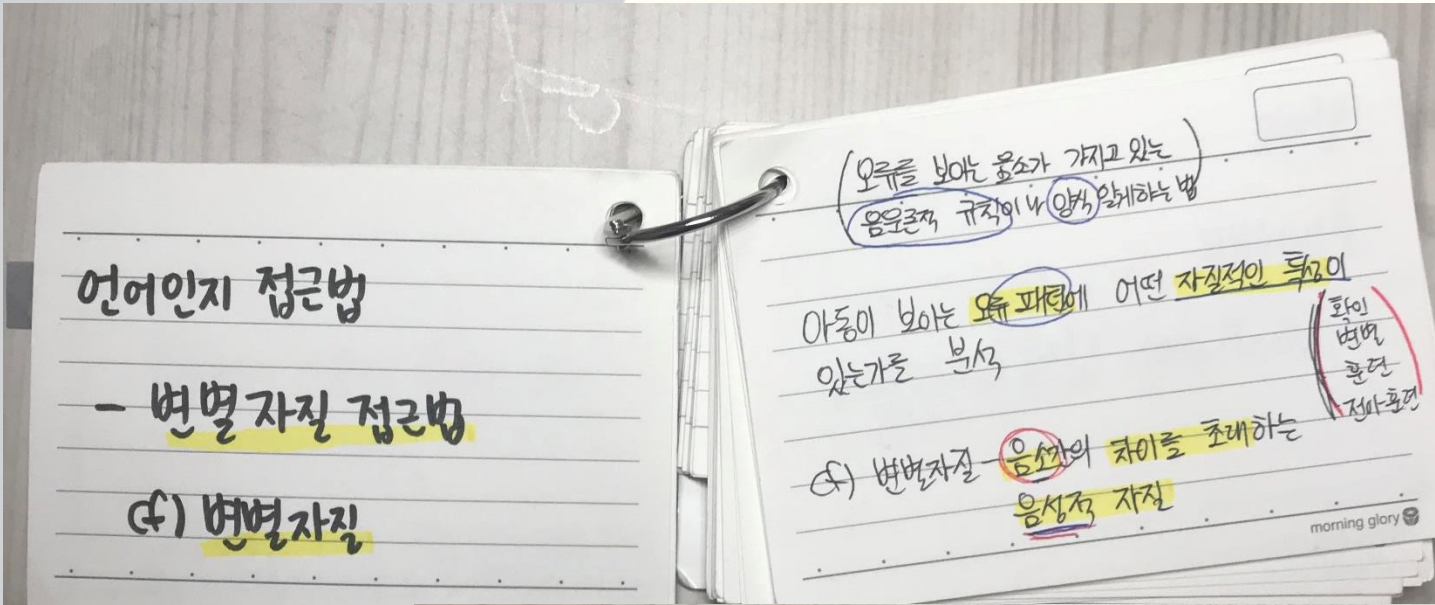 언어인지 접근법
- 변별자질 접근법
cf) 변별자질
(오류를 보이는 음소가 가지고 있는
음운론적 규칙이나 양식 알게하는 법)
아동이 보이는 오류 패턴에 어떤 자질적인 특성이
있는가를 분석
(확인
변별
훈련
전이·훈련)
cf) 변별자질 - 음소간의 차이를 초래하는
음성적 자질
morning glory